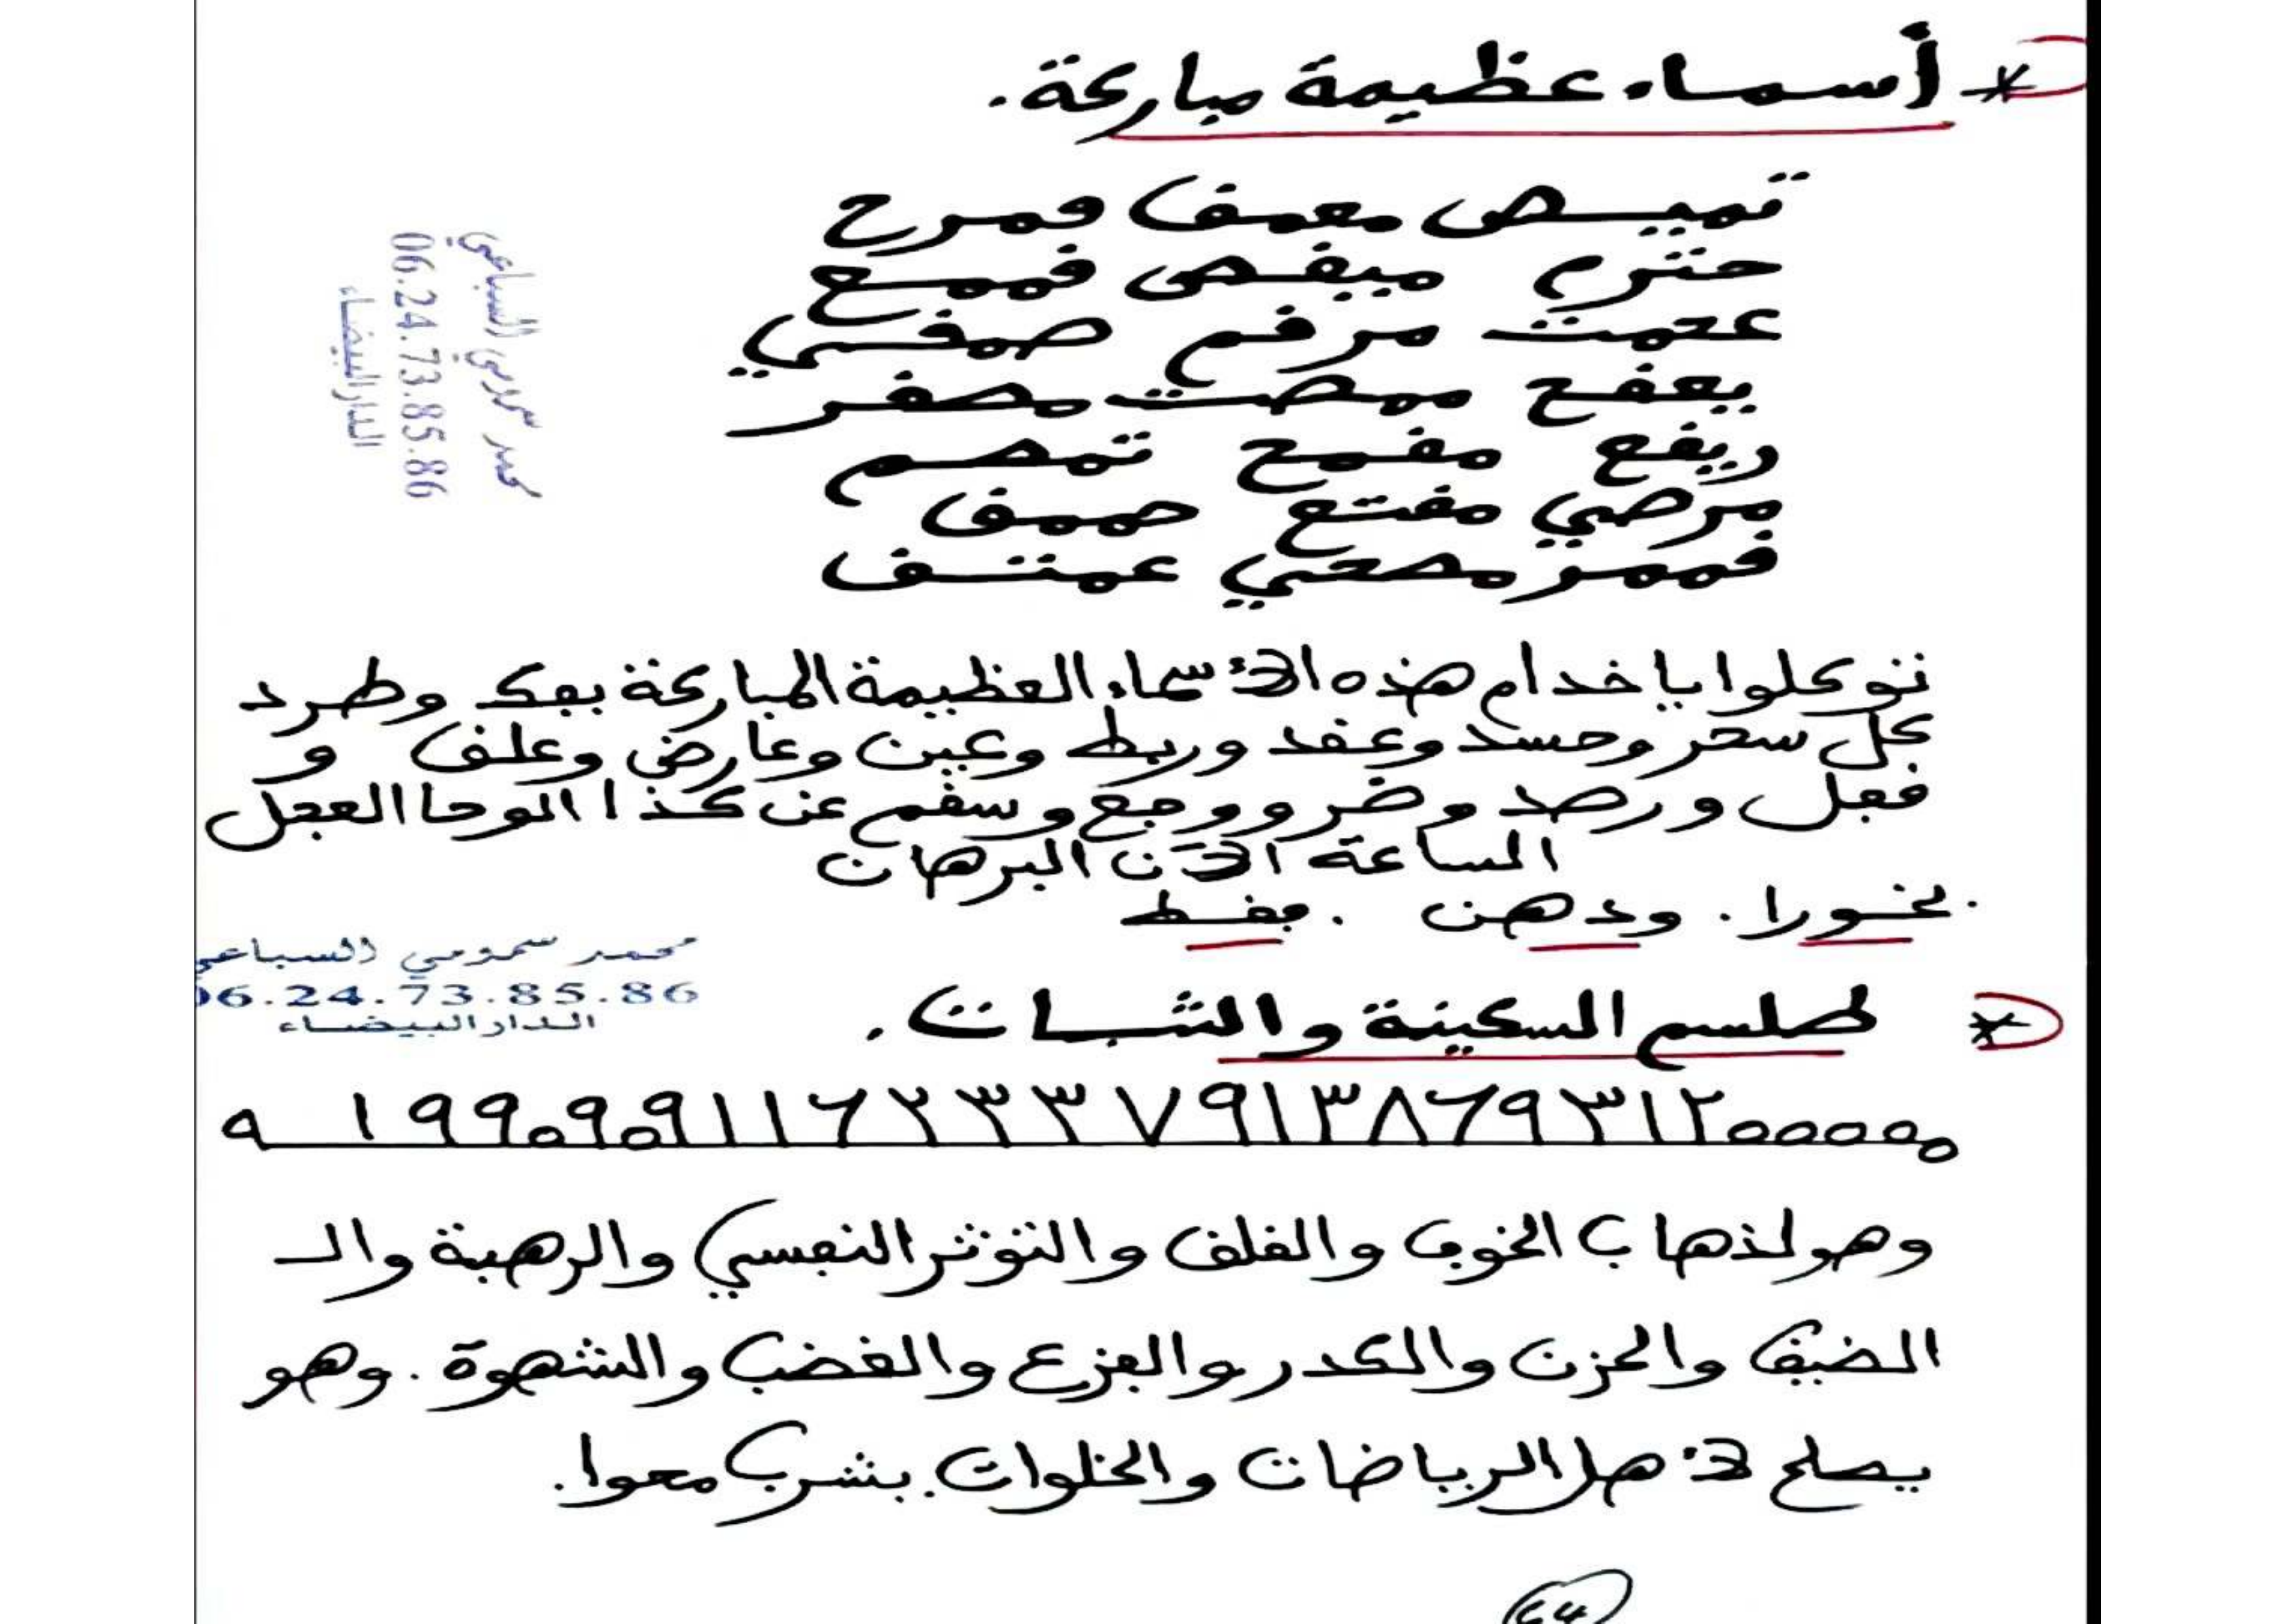 * أسماء عظيمة مباركة.
تميص معمف فمرح
حترم ميفص فممع
عتمت مرفم صمفي
يعفح ممصت مصفر
ريفع مفمح تمصم
مرصي مفتع حممف
فممر مصعي عمتف
محمد سمومي السباعي
06.24.73.85.86
الدار البيضاء
توكلوا يا خدام هذه الأسماء العظيمة المباركة بفك وطرد
كل سحر وحسد وعقد وربط وعين وعارض وعلق و
فعل ورصد وضر ووجع وسقم عن كذا الوحا العجل
الساعة الآن البرهان
. بخورا. ودهن . فقط
محمد سمومي السباعي
06.24.73.85.86
الدار البيضاء
* طلسم السكينة والثبات.
وهو لذهاب الخوف والقلق والتوتر النفسي والرهبة والـ
الضيق والحزن والكدر والفزع والغضب والشهوة. وهو
يصلح لأهل الرياضات والخلوات. يشرب محوا.